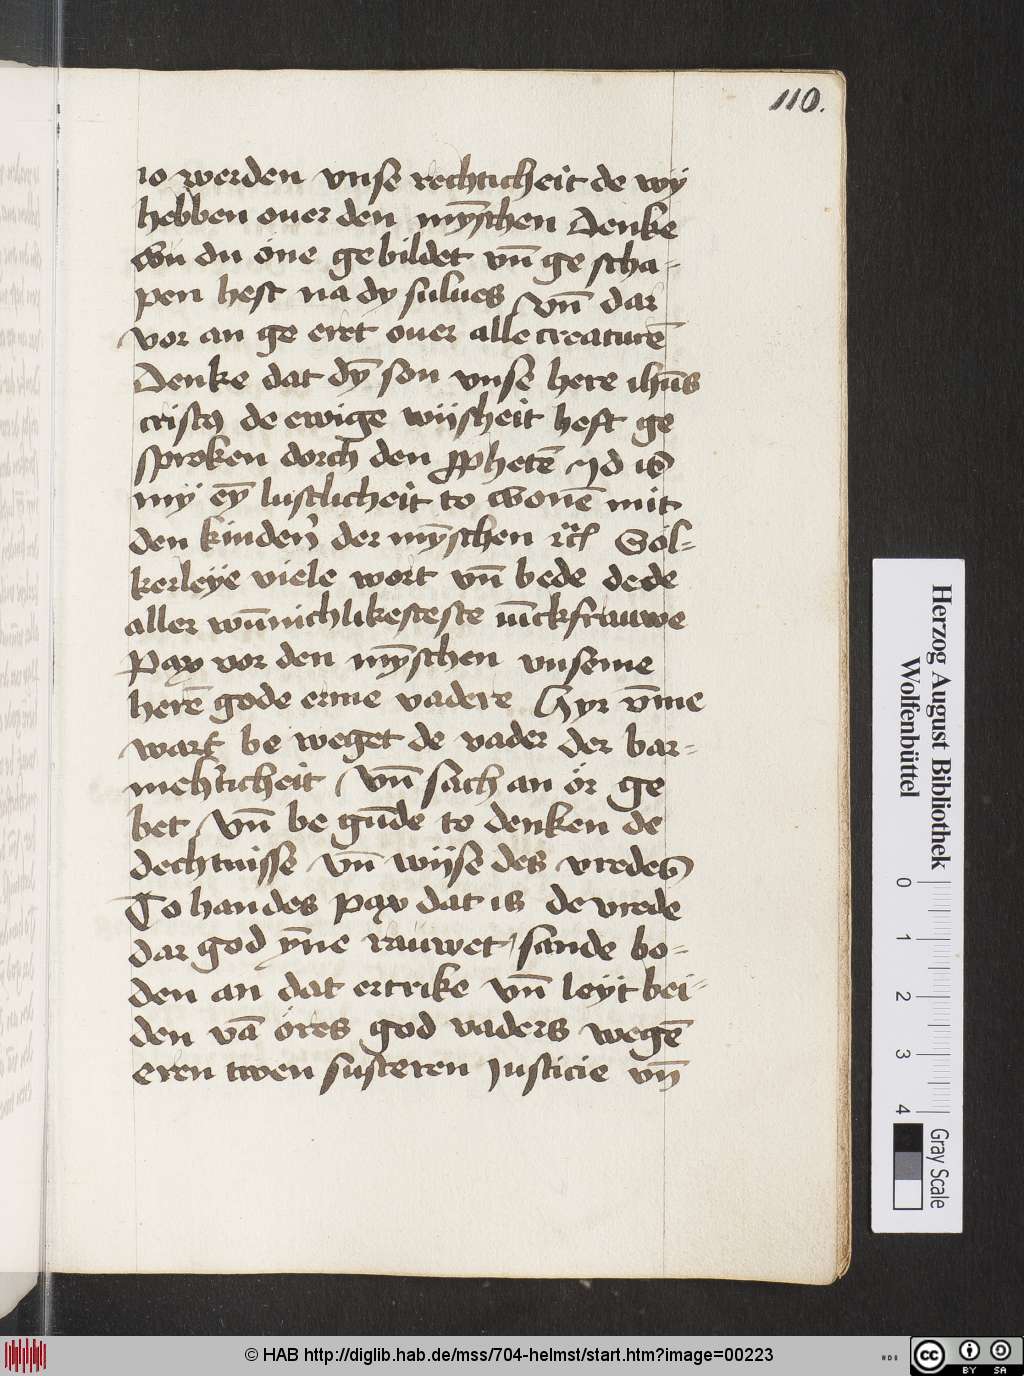 110.
io werden vnse rechticheit de wÿ
hebben ouer den mȳschen Denke
wu du öne gebildet vn̄ ge scha-
pen hest na dy sulues vn̄ dar
vor an ge eret ouer alle creaturē
Denke dat dȳ son vnse here ihūs
cristꝯ de ewige wijsheit heft ge
sproken dorch den ꝓphetē yd is
mÿ eȳ lustlicheit to wonē mit
den kinden̓ der mȳschen Söl-
kerleÿe viele wort vn̄ bede dede
aller wūnichlikesteste iūckfrauwe
Pax vor den mȳschen vnseme
herē gode erme vadere Hyr v̄me
wart be weget de vader der bar-
mehr̓ticheit / vn̄ sach an ör ge
bet / vn̄ be gūde to denken de
dechtnisse vn̄ wijse des vredes
To handes pax dat is de vrede
dar god ȳne rauwet / sande bo-
den an dat ertrike vn̄ leÿt bei-
den vā öres god vaders wegē
eren twen susteren Justicie vn̄
Herzog August Bibliothek
Wolfenbüttel
0 1 2 3 4
Gray Scale
© HAB http://diglib.hab.de/mss/704-helmst/start.htm?image=00223
cc BY SA